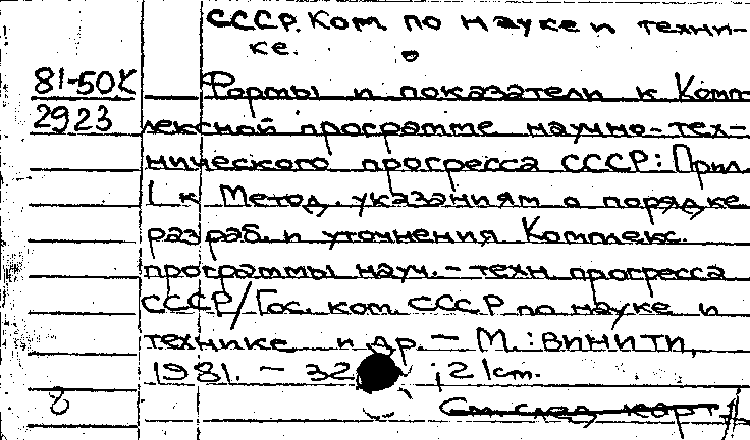 СССР. Ком. по науке и техни-
ке.
81-50К Формы и показатели к Комп-
2923 лексной программе научно-тех-
нического прогресса СССР: Прил.
1 к Метод. указаниям о порядке
разраб. и уточнения Комплекс.
программы науч.-техн прогресса
СССР/Гос. ком. СССР по науке и
технике и др. – М.: ВИНИТИ,
1981. – 32 ; 21 см.
8 См. след карт.